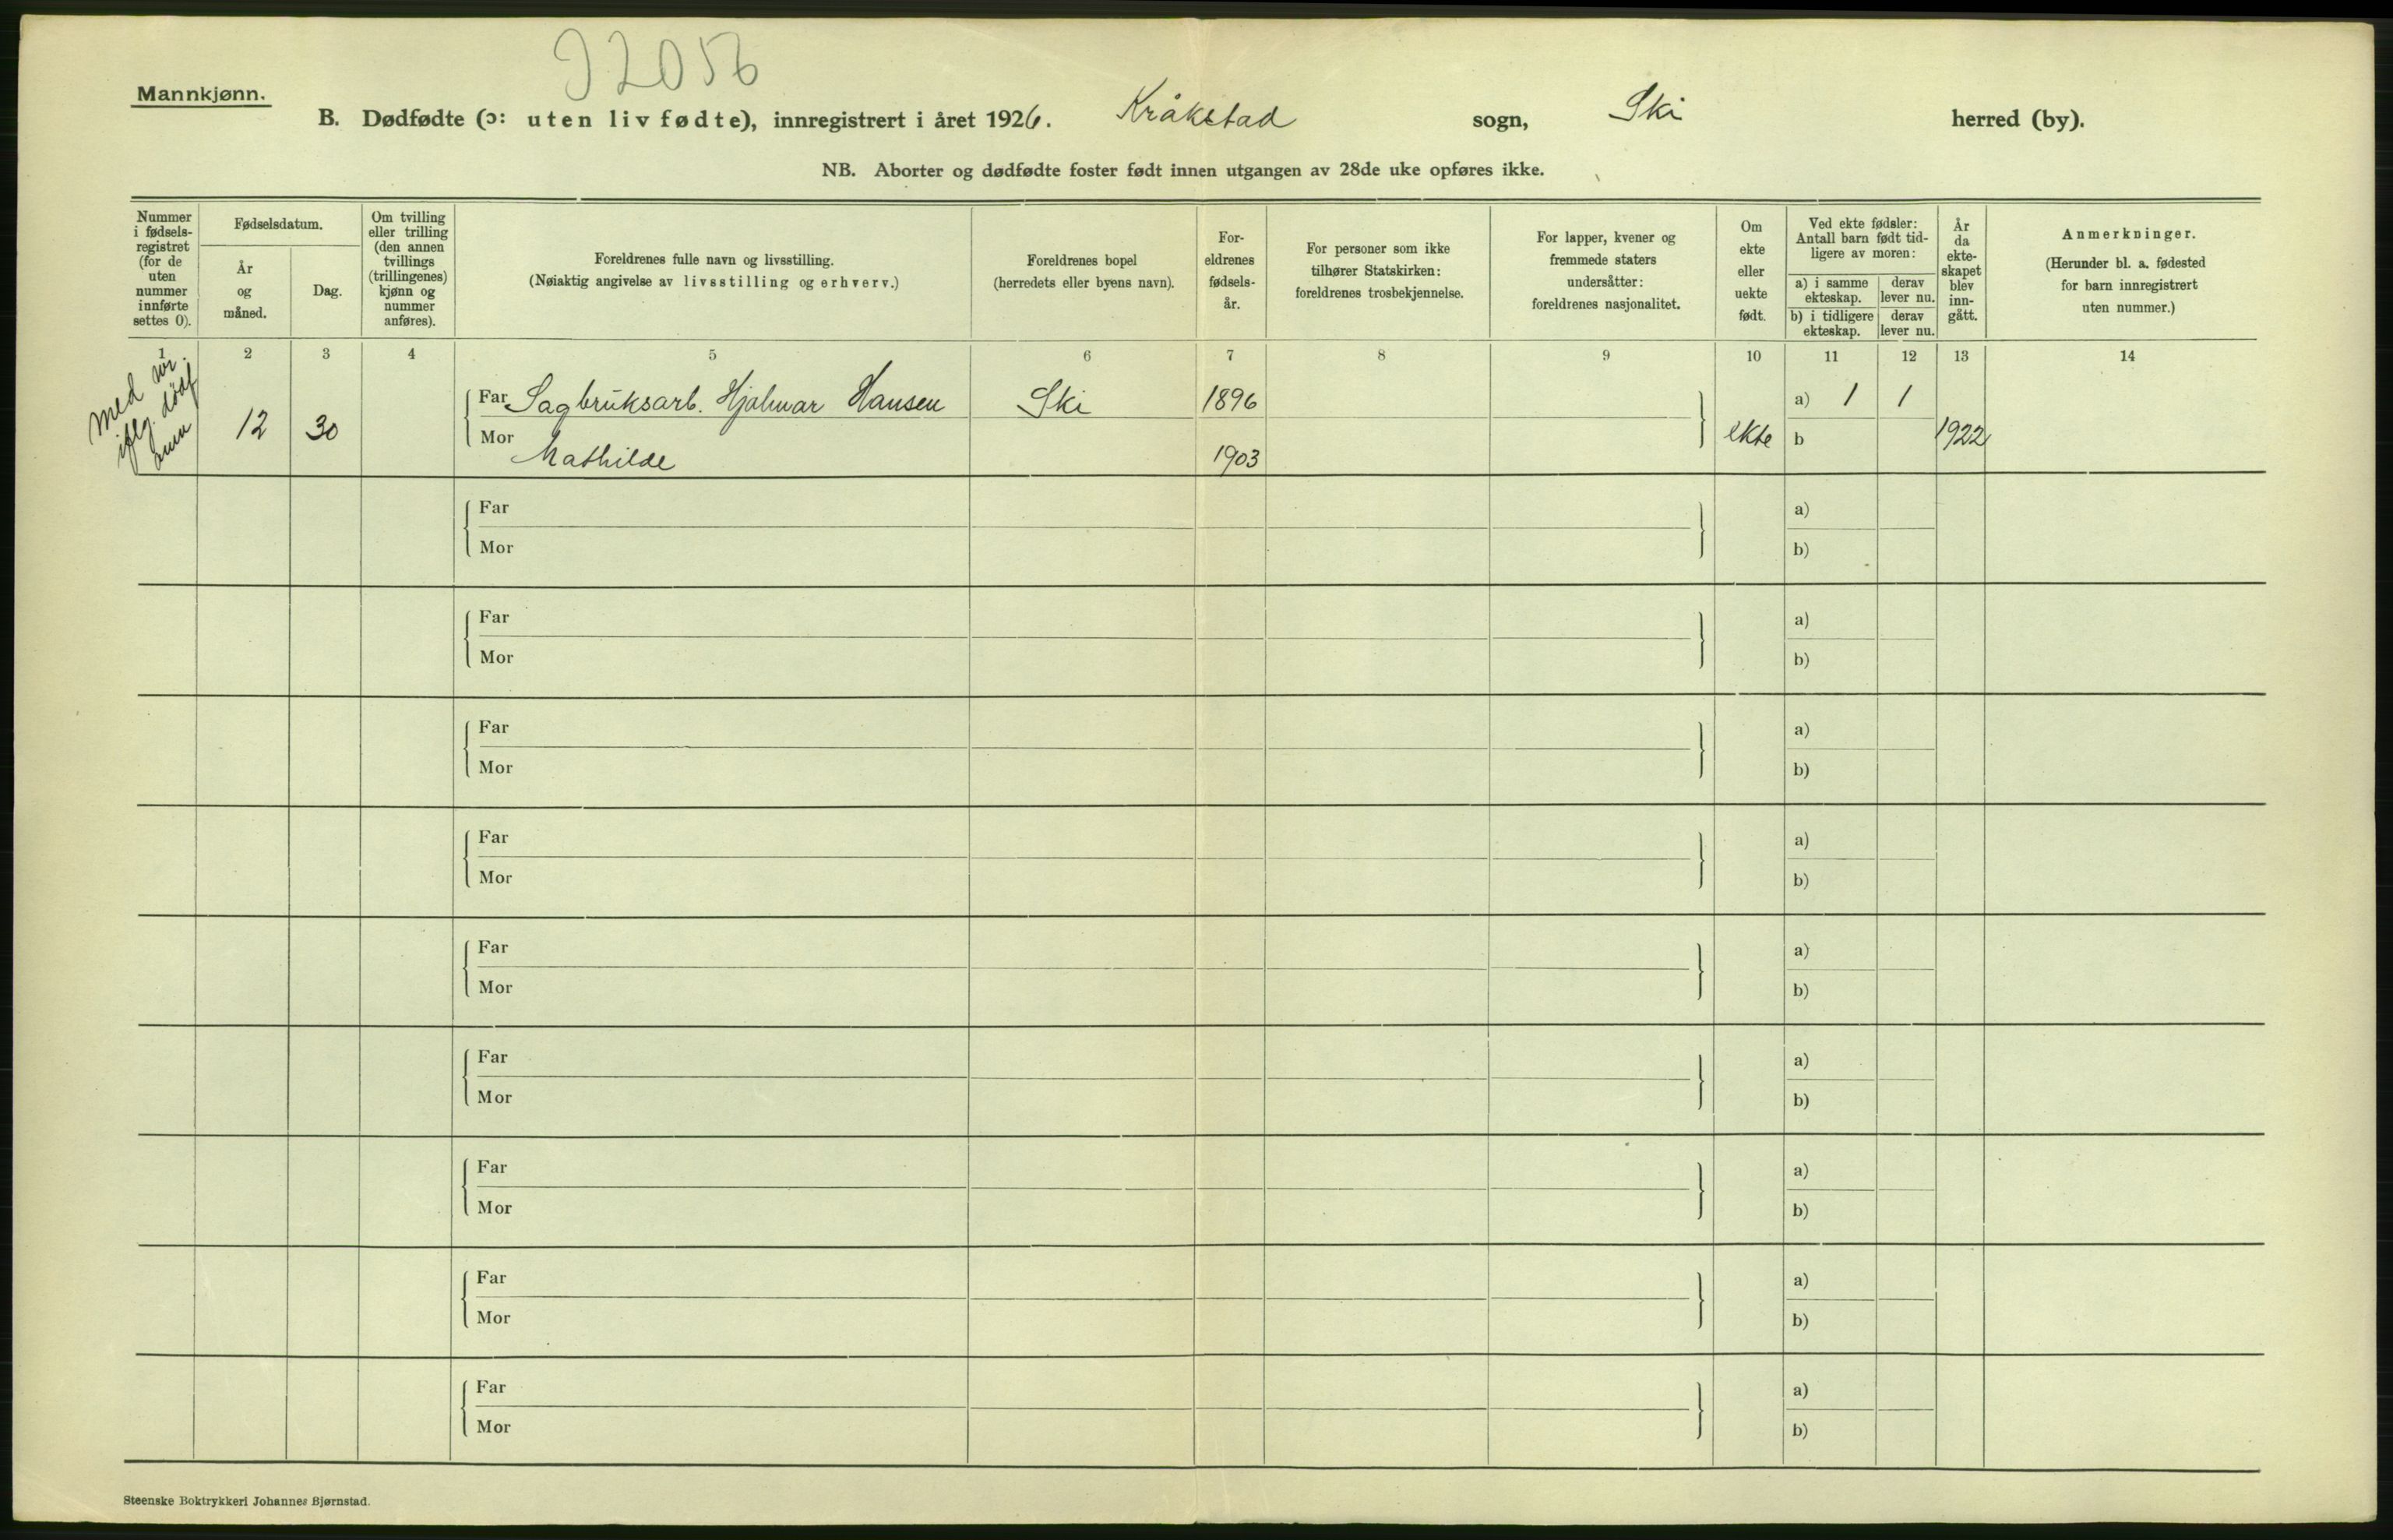 J2056
Mannkjønn.
B. Dødfødte (ɔ: uten liv fødte), innregistrert i året 1926. Kråkstad sogn, Ski herred (by).
NB. Aborter og dødfødte foster født innen utgangen av 28de uke opføres ikke.
Nummer
i fødsels-
registret
(for de
uten
nummer
innførte
settes 0).
Fødselsdatum.
År
og
måned.
Dag.
Om tvilling
eller trilling
(den annen
tvillings
(trillingenes)
kjønn og
nummer
anføres).
Foreldrenes fulle navn og livsstilling.
(Nøiaktig angivelse av livsstilling og erhverv.)
Foreldrenes bopel
(herredets eller byens navn).
For-
eldrenes
fødsels-
år.
For personer som ikke
tilhører Statskirken:
foreldrenes trosbekjennelse.
For lapper, kvener og
fremmede staters
undersåtter:
foreldrenes nasjonalitet.
Om
ekte
eller
uekte
født.
Ved ekte fødsler:
Antall barn født tid-
ligere av moren:
a) i samme
ekteskap.
derav
lever nu.
b) i tidligere
ekteskap.
derav
lever nu.
År
da
ekte-
skapet
blev
inn-
gått.
Anmerkninger.
(Herunder bl. a. fødested
for barn innregistrert
uten nummer.)
1 2 3 4 5 6 7 8 9 10 11 12 13 14
Med
12 30
Far Sagbruksarb. Hjalmar Hansen Ski 1896
Mor Mathilde 1903
ekte
a) 1 1
b
1922
Far a)
Mor b)
Far a)
Mor b)
Far a)
Mor b)
Far a)
Mor b)
Far a)
Mor b)
Far a)
Mor b)
Far a)
Mor b)
Far a)
Mor b)
Far a)
Mor b)
Steenske Boktrykkeri Johannes Bjørnstad.